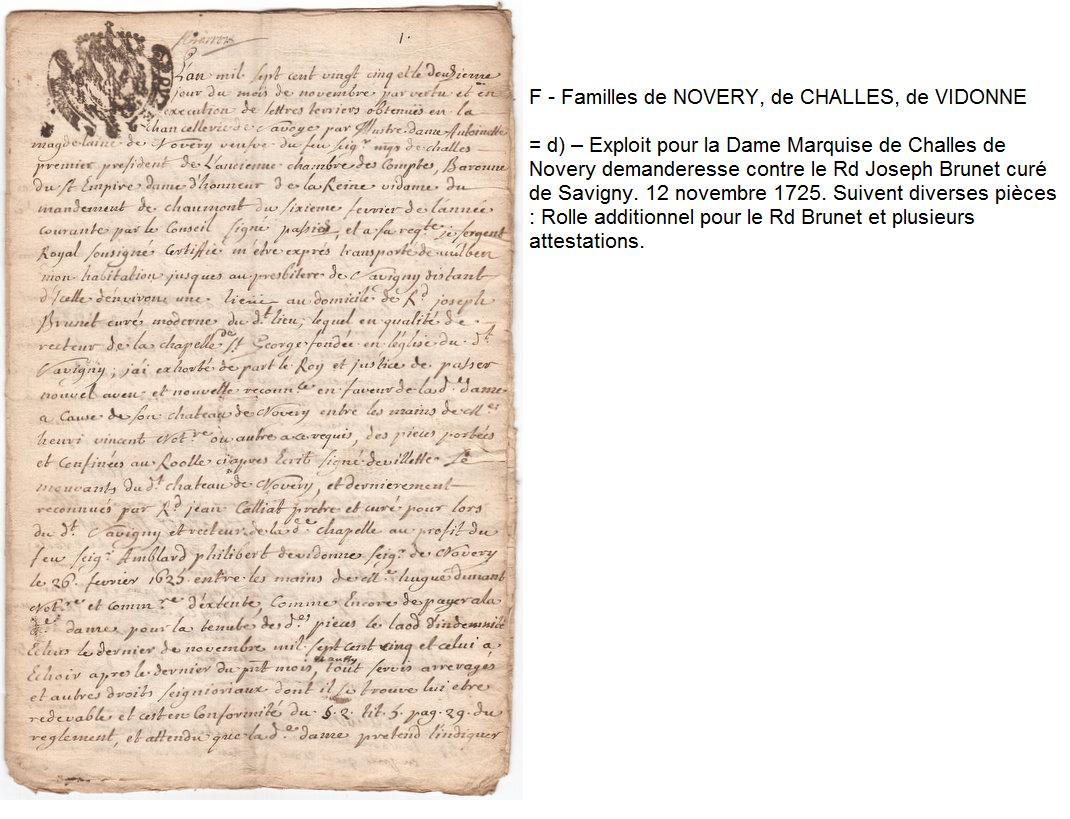 1.
L'an mil sept cent vingt cinq et le douzieme
jour du mois de novembre par vertu et en
execution de lettres terriers obtenües en la
chancellerie de Savoye par Illustre dame Antoinette
magdelaine de Novery veufve du feu seigr. mqs de challes
premier president de L'ancienne chambre des Comptes, Baronne
du st Empire dame d'honneur de la Reine vidame du
mandement de chaumont du sixieme fevrier de l'année
courante par le Conseil signe et a sa regte. je sergent
Royal sousigné Certiffie m'être exprés transporté de
mon habitation jusques au presbitere de Savigny distant
d'Icelle d'environ une lieüe au domicile de Rd joseph
Brunet curé moderne du dt. lieu, lequel en qualité de
recteur de la chapelle de St. George fondée en l'église du dt.
Savigny, j'ai exhorté de part le Roy et justice de passer
nouvel aveu et nouvelle reconnce en faveur de la de. dame
a Cause de son chateau de Novery entre les mains de Me
henri vincent Notre ou autre a ce requis, des pieces portées
et Confinées au Roolle ci apres Ecrit signé devillette Le
mouvants du dt chateau de Novery, et dernierement
reconnües par Rd jean Calliat prêtre et curé pour lors
du dt. Savigny et recteur de la de chapelle au profit du
feu seigr. Amblard philibert de vidonne seigr. de Novery
le 26. fevrier 1625 entre les mains de Me. hugue dunant
Notre et commre d'extente, Comme Encore de payer a la
de dame pour la tenute des des pieces le laod d'indemnité
Echus le dernier de novembre mil sept cent cinq et celui a
Echoir apres le dernier du pnt mois, tout servis arrerages
et autres droits seignioriaux dont il se trouve lui etre
redevable et cest en Conformité du §. 2. tit. 5. pag. 29. du
reglement, et attendu que la de. dame pretend l'indiquer
F - Familles de NOVERY, de CHALLES, de VIDONNE
= d) – Exploit pour la Dame Marquise de Challes de
Novery demanderesse contre le Rd Joseph Brunet curé
de Savigny. 12 novembre 1725. Suivent diverses pièces
: Rolle additionnel pour le Rd Brunet et plusieurs
attestations.